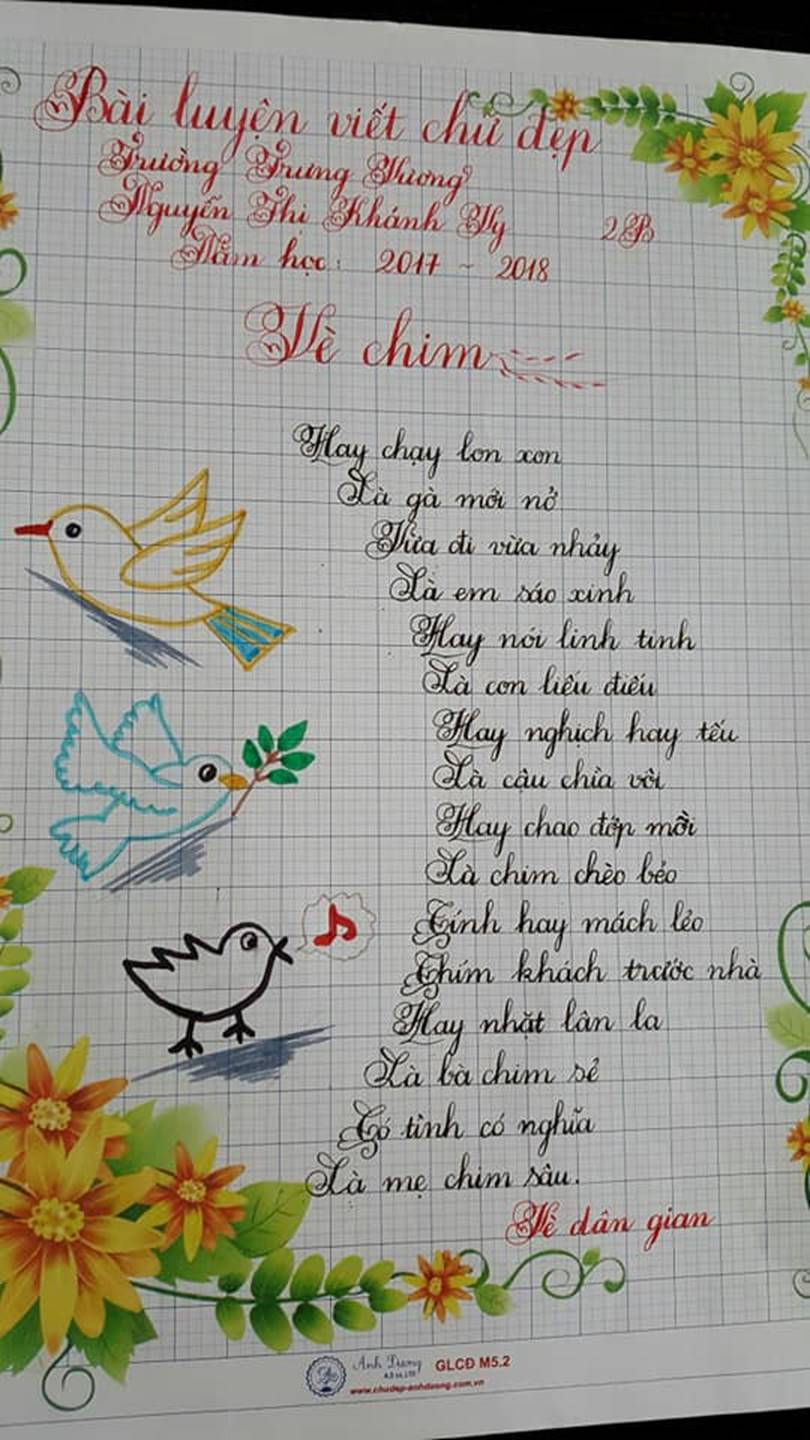 Bài luyện viết chữ đẹp
Trường Trưng Vương
Nguyễn Thị Khánh Vy 2B
Năm học: 2017 - 2018
Vè chim
Hay chạy lon xon
Là gà mới nở
Vừa đi vừa nhảy
Là em sáo xinh
Hay nói linh tinh
Là con liếu điếu
Hay nghịch hay tếu
Là cậu chìa vôi
Hay chao đớp mồi
Là chim chèo bẻo
Tính hay mách lẻo
Thím khách trước nhà
Hay nhặt lân la
Là bà chim sẻ
Có tình có nghĩa
Là mẹ chim sâu.
Vè dân gian
Ánh Dương GLCĐ M5.2
www.chudep-anhduong.com.vn